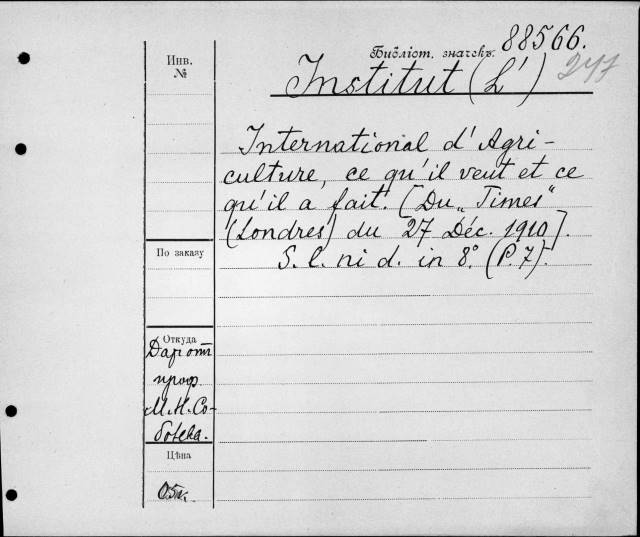 Библіот. значекъ. 88566.
247
Institut (L')
Инв.
№
International d'Agri-
culture, ce qu'il veut et ce
qu'il a fait. [Du „Times"
(Londres) du 27 Déc. 1910].
S. l. ni d. in 8°. (P. 7).
По заказу
Откуда
Дар от
проф.
М. Н. Со-
болева.
Цѣна